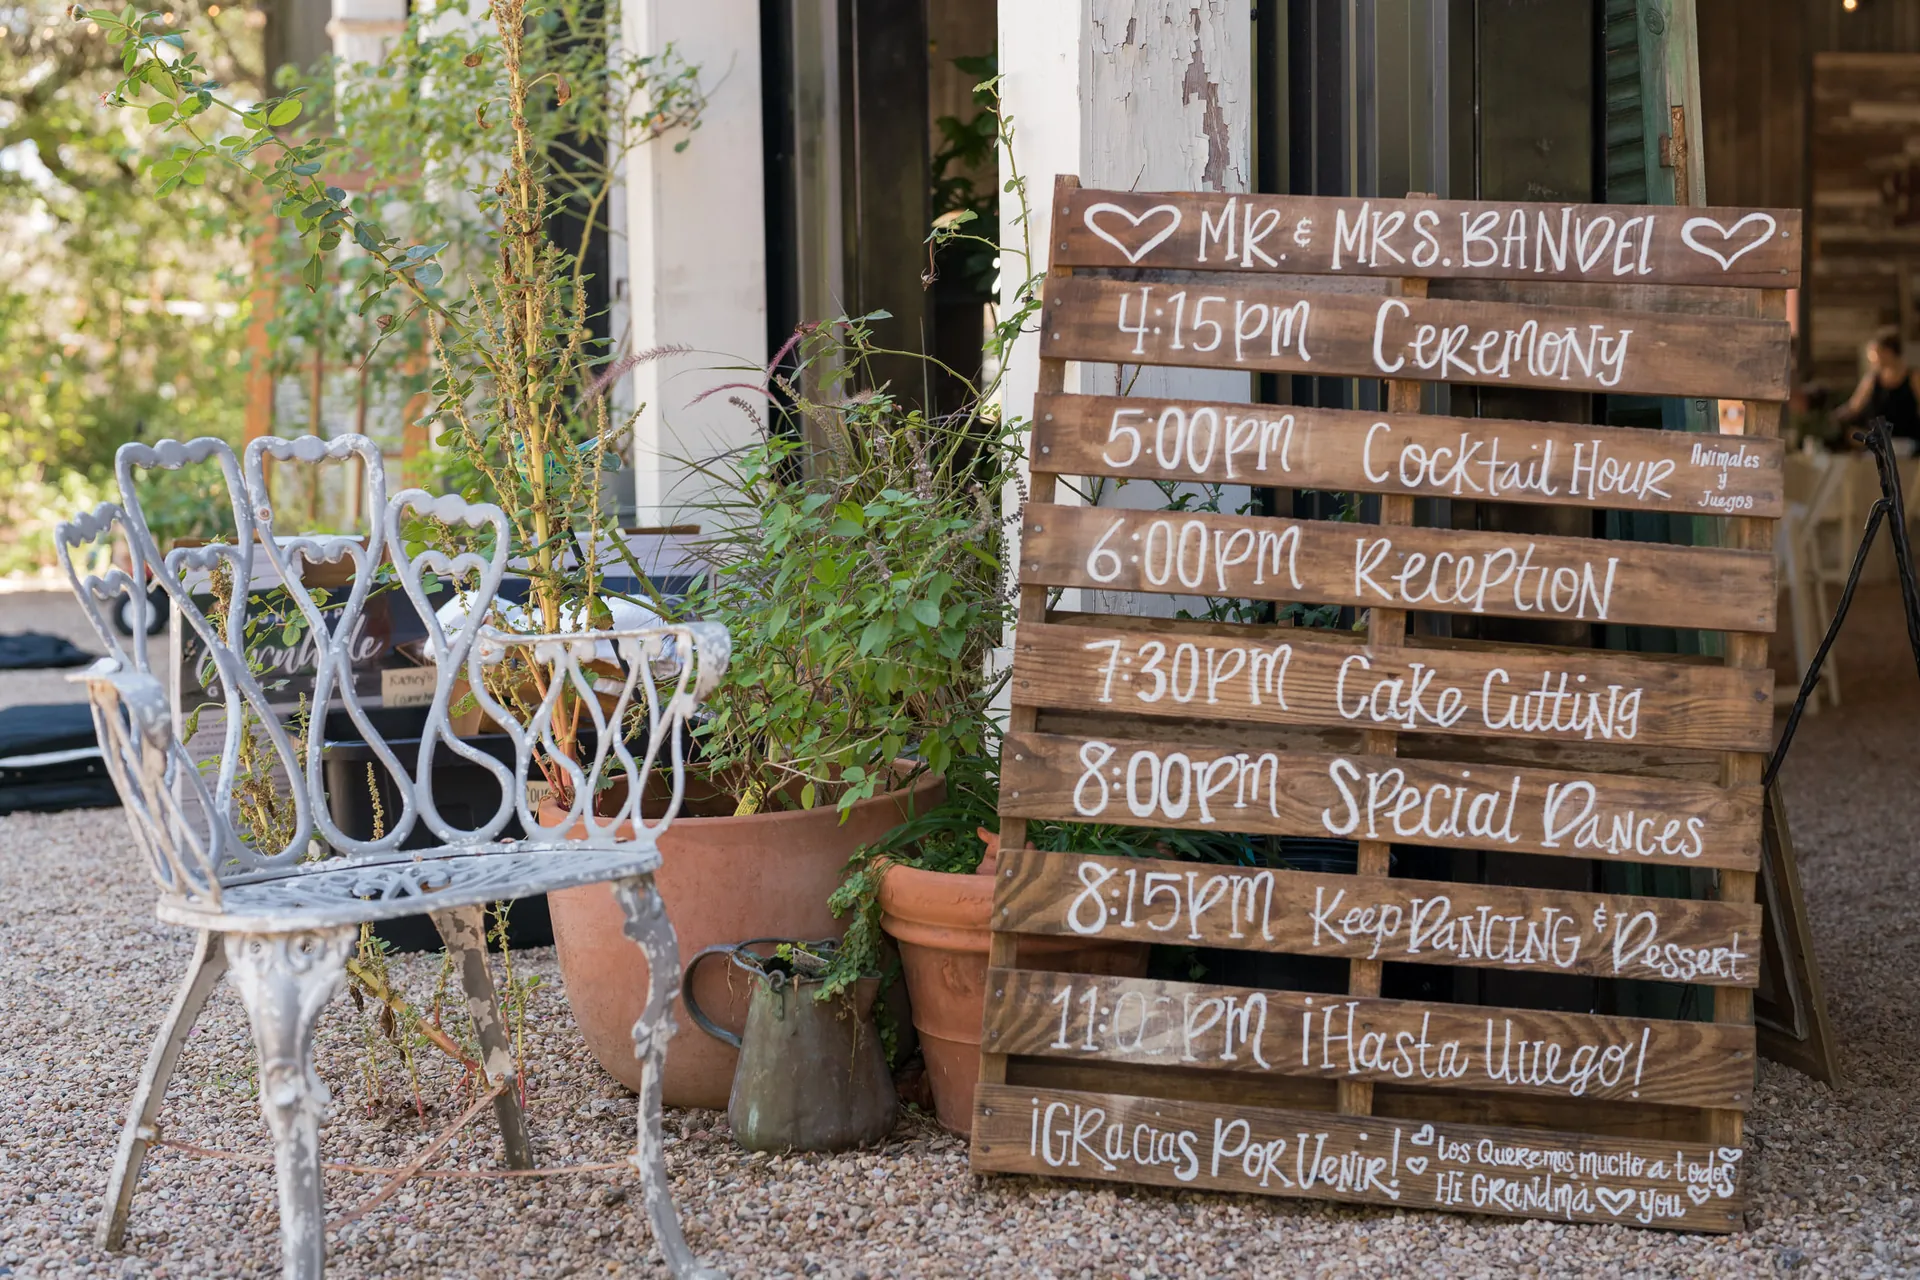 MR. & MRS. BANDEL
4:15PM CEREMONY
5:00PM Cocktail Hour Animales y Juegos
6:00PM Reception
7:30PM Cake Cutting
8:00PM Special Dances
8:15PM Keep DANCING & Dessert
11:00PM ¡Hasta luuego!
¡GRacias POR VENIR!
Los Queremos mucho a todos
Hi GRANdma you
Kathey's